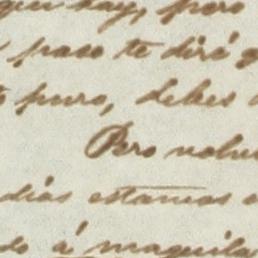 hay, pero
paso te dirá
puro, debes
Pero
dias estamos
á maquila